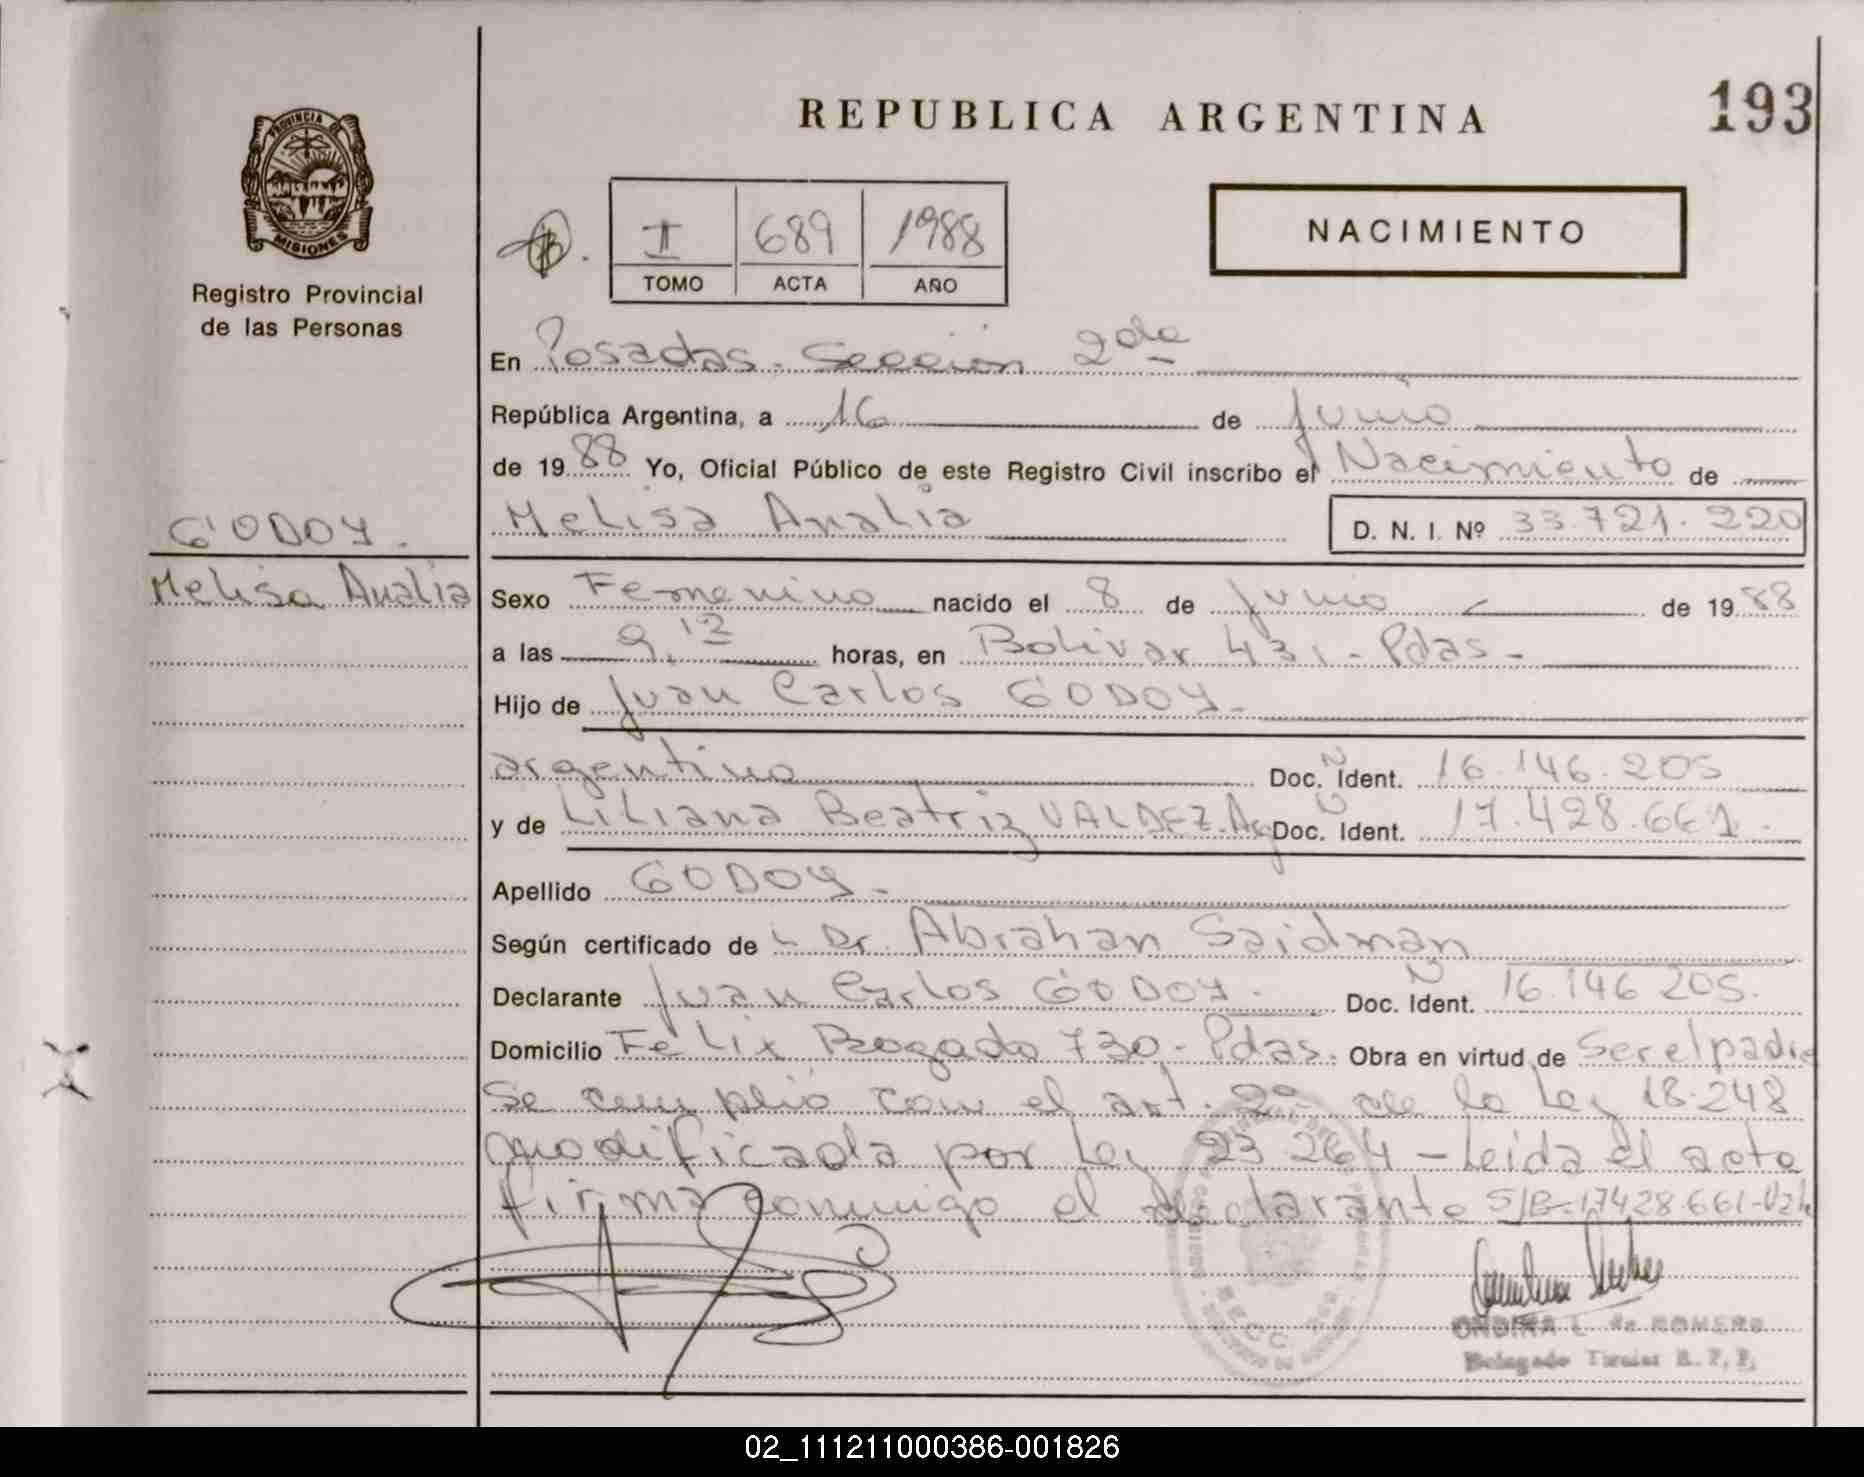 REPUBLICA ARGENTINA
193
PROVINCIA DE
MISIONES
Registro Provincial
de las Personas
II 689 1988
TOMO ACTA AÑO
NACIMIENTO
En Posadas. Sección 2da
República Argentina, a 16 de Junio
de 1988 Yo, Oficial Público de este Registro Civil inscribo el Nacimiento de
Melisa Analia D. N. I. Nº 33.721.220
GODOY.
Melisa Analia
Sexo Femenino nacido el 8 de Junio de 1988
a las 9,12 horas, en Bolivar 431.- Pdas.-
Hijo de Juan Carlos GODOY.-
argentino Doc. Ident. N 16.146.205
y de Liliana Beatriz VALDEZ. Arg Doc. Ident. 17.428.661.
Apellido GODOY.-
Según certificado de Dr. Abrahan Saidman
Declarante Juan Carlos GODOY.- Doc. Ident. N 16.146 205.
Domicilio Felix Bogado 730.- Pdas. Obra en virtud de Ser el padre
Se cumplió con el art. 2º de la Ley 18.248
modificada por Ley 23.264 - Leida el acta
firma conmigo el declarante S/B-17428.661-Vale
ONDINA L. de ROMERO
Delegado Titular R. P. P.
02_111211000386-001826